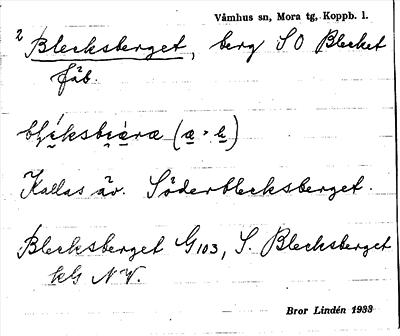 Våmhus sn, Mora tg, Koppb. l.
2 Blecksberget, berg SO Blecket
fäb.
Kallas äv. Söderblecksberget.
Blecksberget G103, S. Blecksberget
kG NV.
Bror Lindén 1933